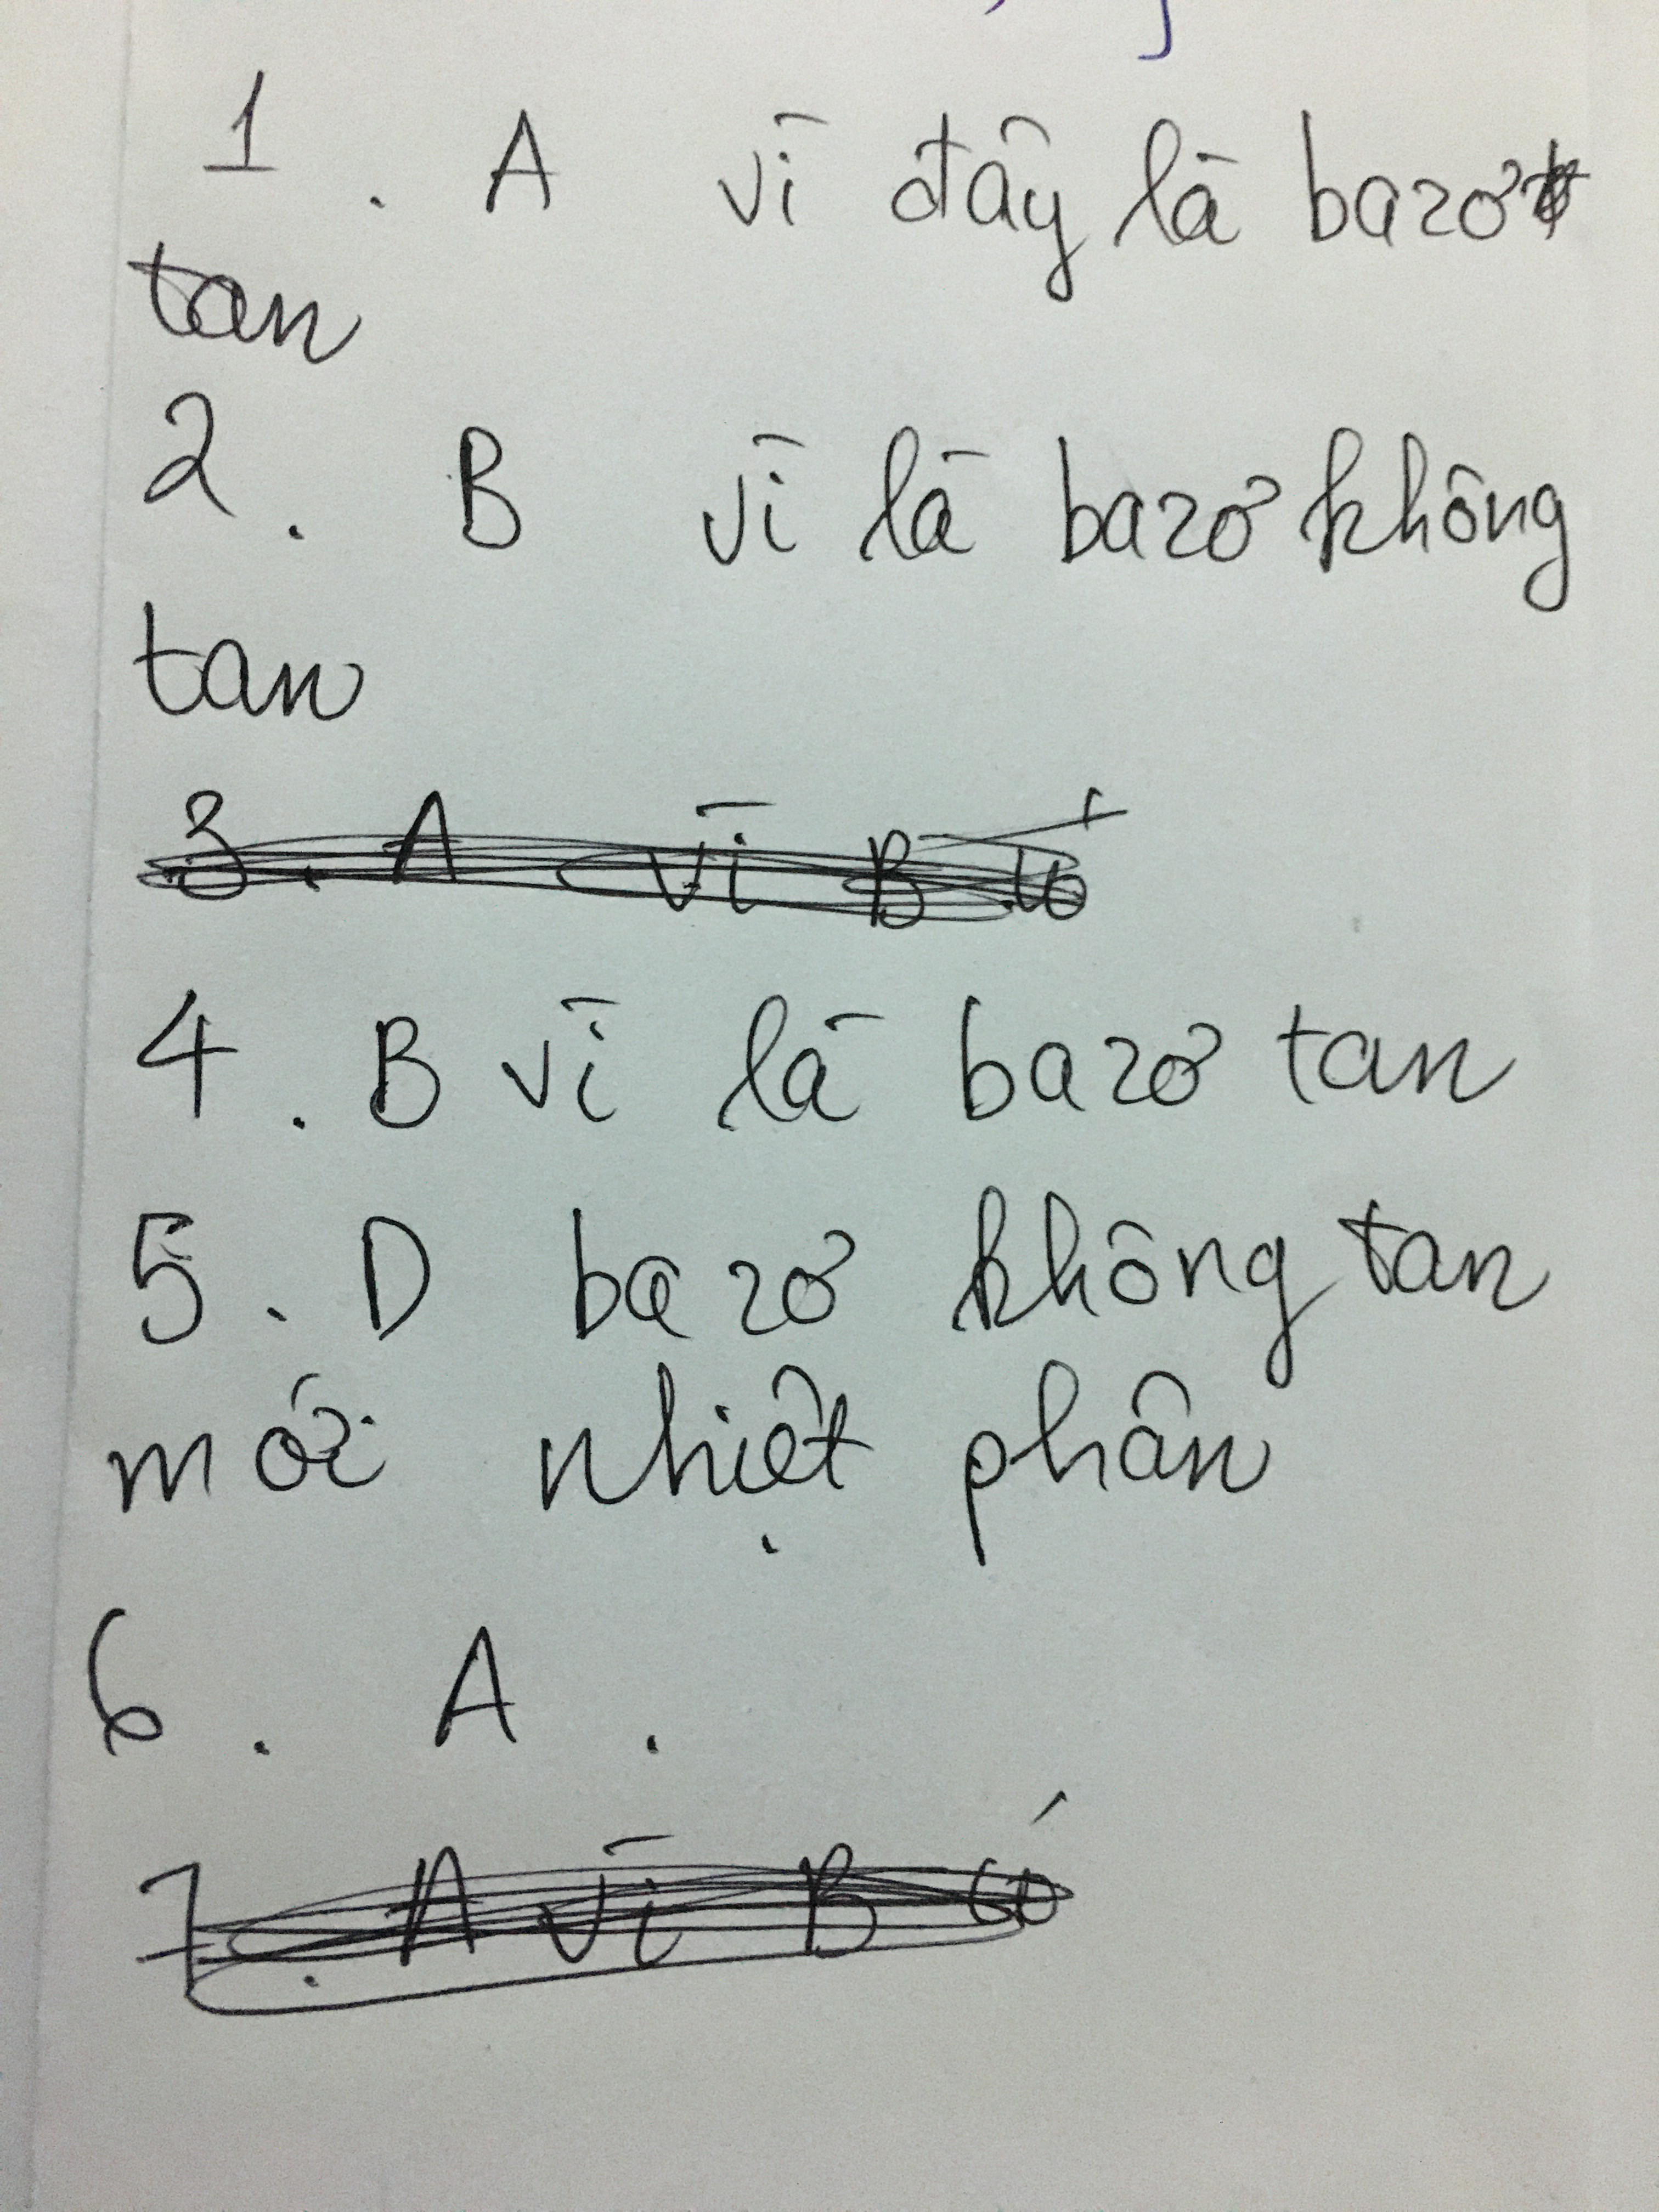 1. A vì đây là bazơ
tan
2. B vì là bazơ không
tan
3. A vì B có
4. B vì là bazơ tan
5. D bazơ không tan
mới nhiệt phân
6. A.
7. A vì B có